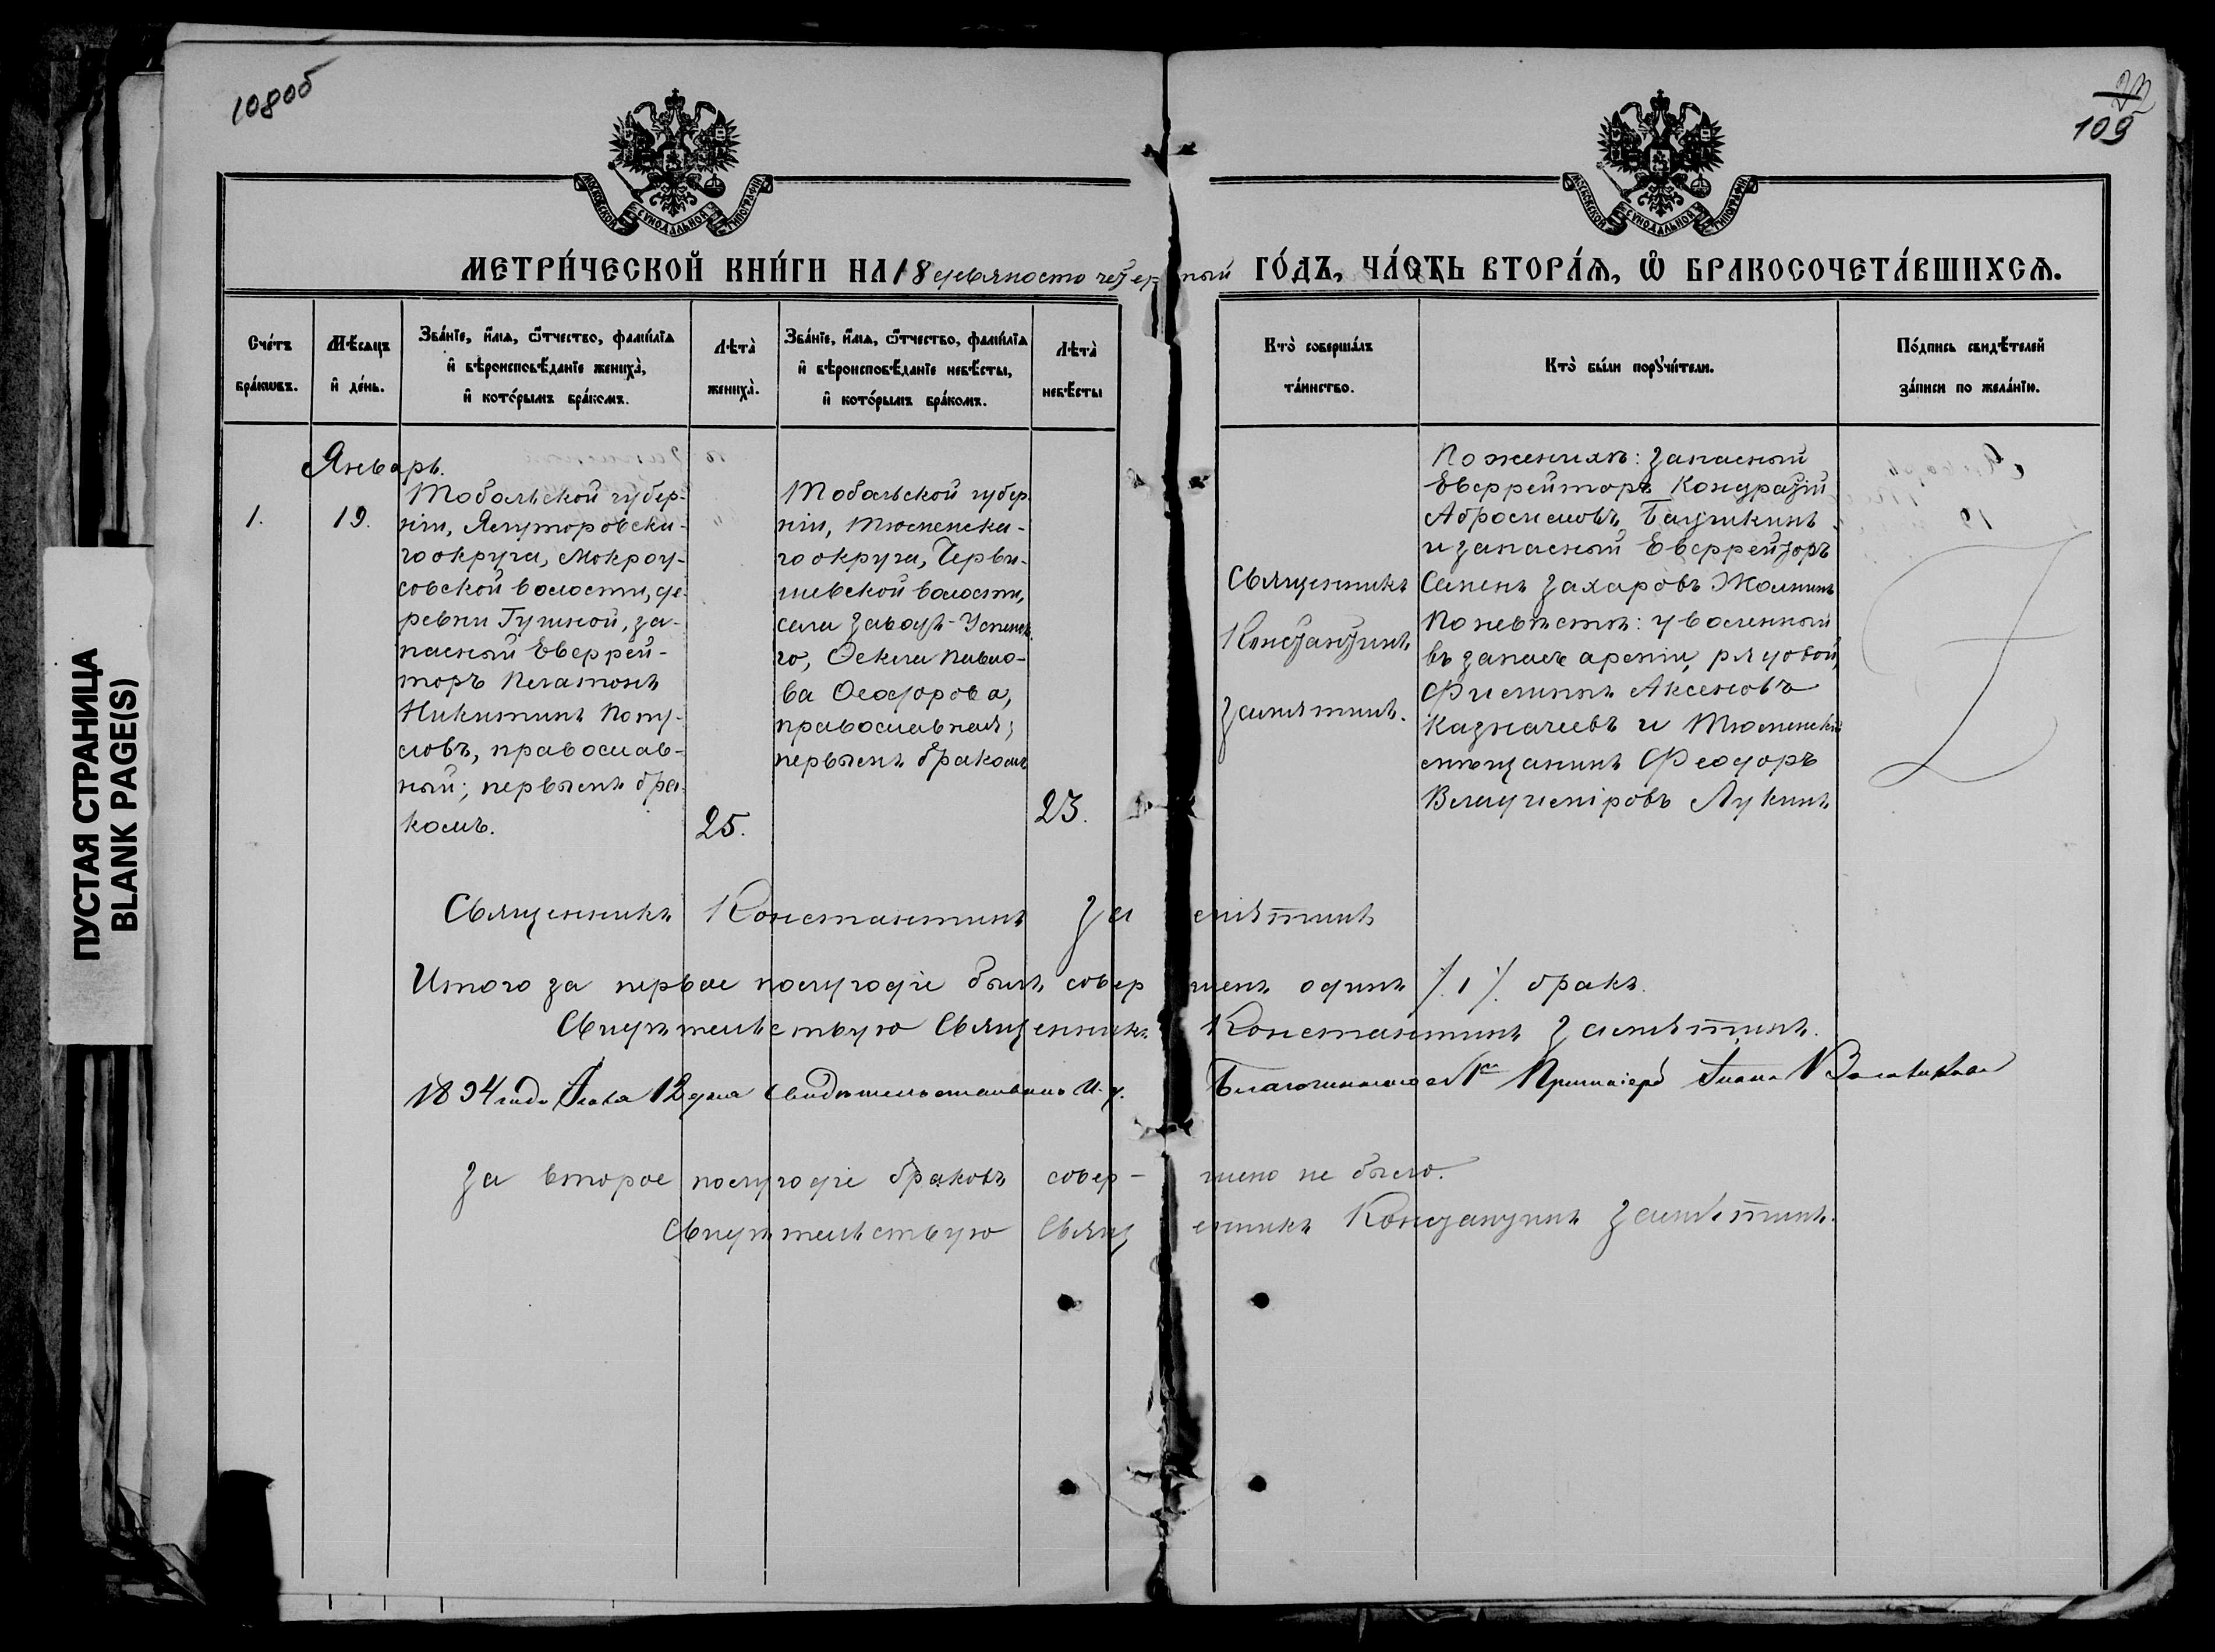 108об
109
МОСКОВСКОЙ СѴНОДАЛЬНОЙ ТИПОГРАФІИ
МОСКОВСКОЙ СѴНОДАЛЬНОЙ ТИПОГРАФІИ
МЕТРИ́ЧЕСКОЙ КНИ́ГИ НА 18 девяносто четвер-тый ГО́ДЪ, ЧА́СТЬ ВТОРА́Я, Ѡ҆ БРАКОСОЧЕТА́ВШИХСЯ.
Сче́тъ
бра́кѡвъ.
Мѣ́сяцъ
и҆ де́нь.
Зва́нїе, и҆́мя, ѻ҆́тчество, фами́лїа
и҆ вѣроисповѣ́данїе жениха̀,
и҆ кото́рымъ бра́комъ.
Лѣта̀
жениха̀.
Зва́нїе, и҆́мя, ѻ҆́тчество, фами́лїа
и҆ вѣроисповѣ́данїе невѣ́сты,
и҆ кото́рымъ бра́комъ.
Лѣта̀
невѣ́сты
Кто̀ соверша́лъ
та́инство.
Кто̀ бы́ли порꙋчи́тели.
По́дпись свидѣ́телей
за́писи по жела́нїю.
Январь.
1.
19.
Тобольской губер-
ніи, Ялуторовска-
го округа, Мокроу-
совской волости, де-
ревни Гушной, за-
пасный Еверрей-
торъ Платонъ
Никитинъ Попу-
ловъ, православ-
ный; первымъ бра-
комъ.
25.
Тобольской губер
ніи, Тюменска-
го округа, Черви-
шевской волости,
села Завода-Успенска-
го, Ѳекла Павло-
ва Ѳеодорова,
православная;
первымъ бракомъ
23.
Священникъ
Константинъ
Замятинъ.
По женихѣ: запасный
Еверрейторъ Кондратій
Абросимовъ Баушкинъ
и запасный Еверрейторъ
Семенъ Захаровъ Жолнинъ
По невѣстѣ: уволенный
въ запасъ арміи, рядовой,
Филиппъ Аксеновъ
Казначеевъ и Тюменскій
мѣщанинъ Феодоръ
Лукинъ
Священникъ Константинъ Замятинъ
Итого за первое полугодіе былъ совершенъ одинъ /.1/. бракъ.
Свидѣтельствую Священникъ Константинъ Замятинъ.
1894 года 12 дня свидѣтельствовалъ И. д. Благочиннаго
За второе полугодіе браковъ совер-шено не было.
Свидѣтельствую Священникъ Константинъ Замятинъ.
ПУСТАЯ СТРАНИЦА
BLANK PAGE(S)